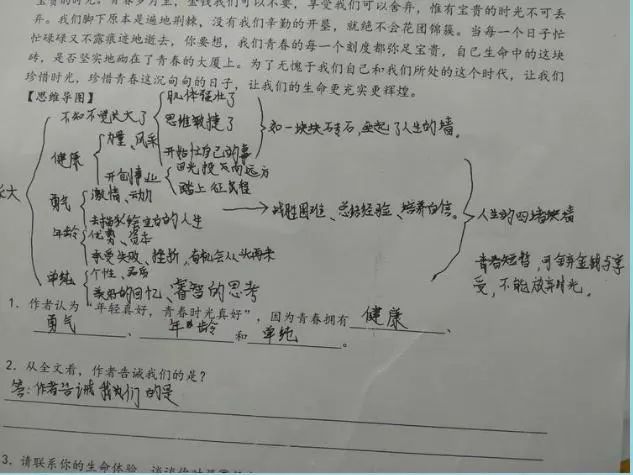 宝贵的时光。青春岁月里，金钱我们可以不要，享受我们可以舍弃，惟有宝贵的时光不可丢
弃。我们脚下原本是遍地荆棘，没有我们辛勤的开垦，就绝不会花团锦簇。当每一个日子忙
忙碌碌又不露痕迹地逝去，你要想，我们青春的每一个刻度都弥足宝贵，自己生命中的这块
砖，是否坚实地砌在了青春的大厦上。为了无愧于我们自己和我们所处的这个时代，让我们
珍惜时光，珍惜青春这沉甸甸的日子，让我们的生命更充实更辉煌。
【思维导图】
不知不觉长大了
肌体强壮了
思维敏捷了
开始忙自己的事
如一块块砖石，垒起了人生的墙。
长大
健康
力量、风采
开创事业
目光投向远方
踏上征程
勇气
激情、动力
去描绘自己的人生
战胜困难、总结经验、培养自信。
年龄
优势、资本
承受失败、挫折，有机会从头再来
单纯
个性、品质
美好的回忆、睿智的思考
人生的四堵墙
青春短暂，可舍弃金钱与享
受，不能放弃时光。
1．作者认为“年轻真好，青春时光真好”，因为青春拥有 健康 、
勇气 、 年龄 和 单纯 。
2．从全文看，作者告诫我们的是？
答：作者告诫我们的是
3．请联系你的生命体验，谈谈你对